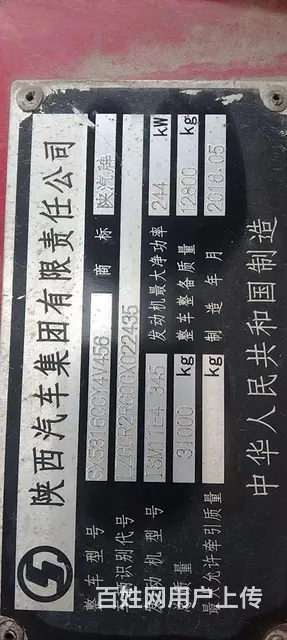 陕西汽车集团有限责任公司
整车型号 SX5316CCY4V456 商标 陕汽牌
识别代号
发动机型号 ISM11E4 345 发动机最大净功率 244 kW
质量 31000 kg 整车整备质量 12800 kg
最大允许牵引质量 kg 制造年月 2016.05
中华人民共和国制造
百姓网用户上传